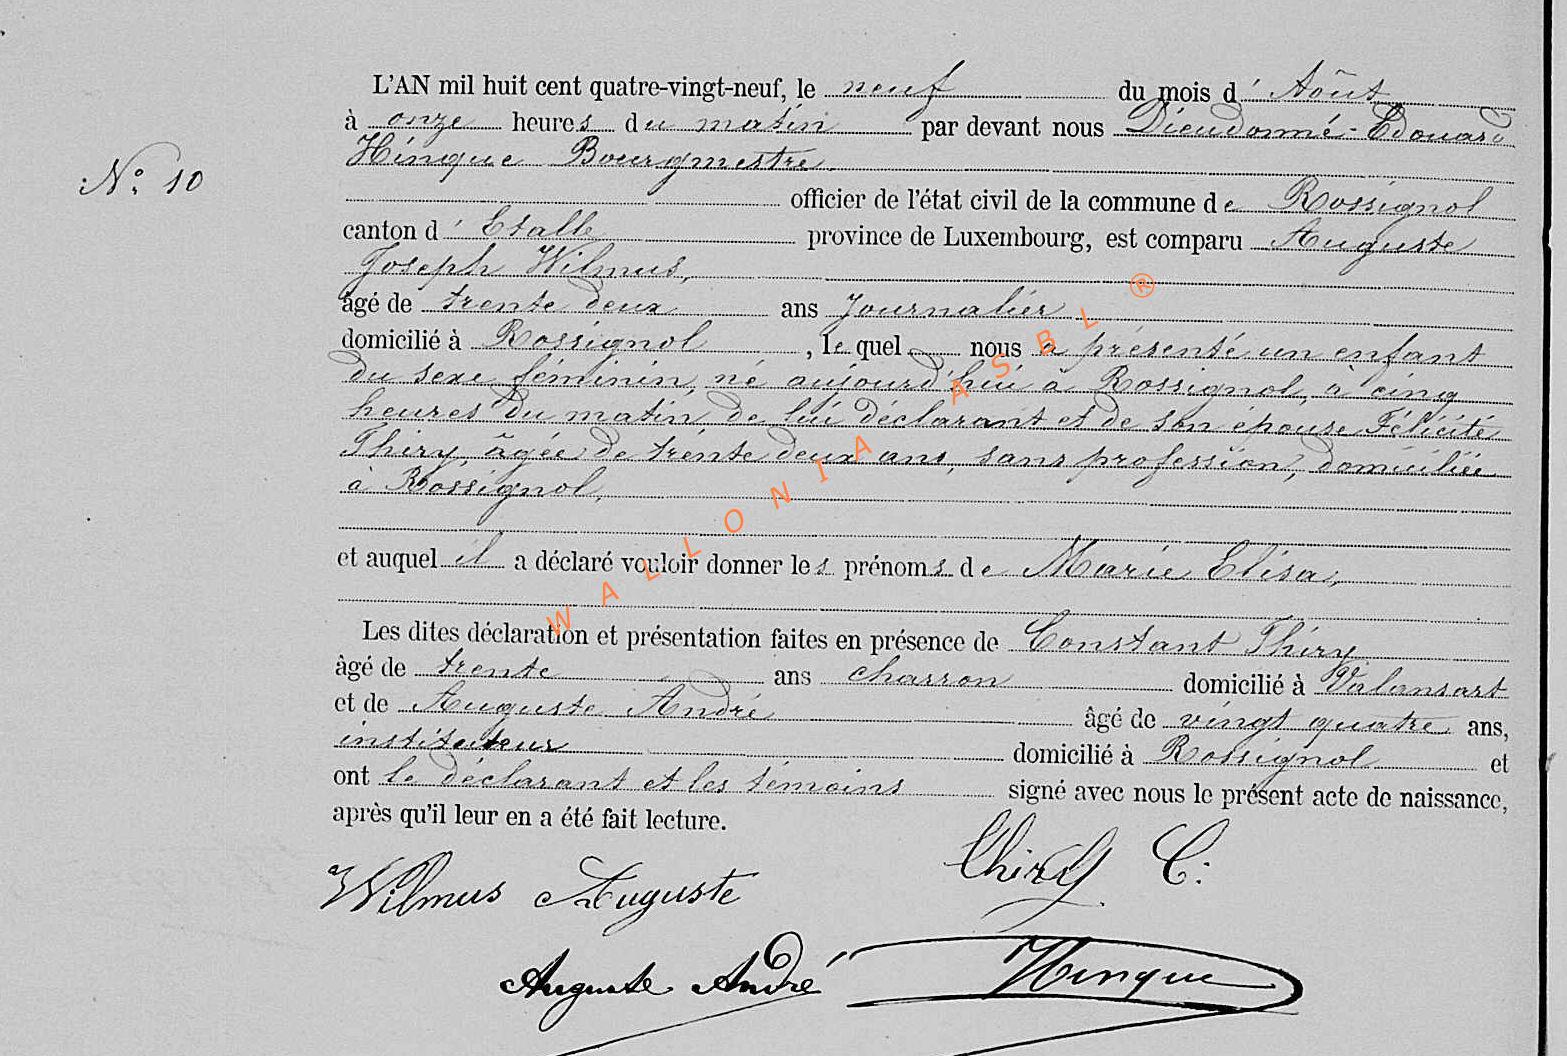 L'AN mil huit cent quatre-vingt-neuf, le neuf du mois d' Août
à onze heures du matin par devant nous Dieudonné-Edouard
Hinque Bourgmestre
N° 10
officier de l'état civil de la commune de Rossignol
canton d' Etalle province de Luxembourg, est comparu Auguste
Joseph Wilmus,
âgé de trente deux ans Journalier
domicilié à Rossignol, lequel nous a présenté un enfant
du sexe féminin, né aujourd'hui à Rossignol, à cinq
heures du matin, de lui déclarant et de son épouse Félicité
Thiry, âgée de trente deux ans, sans profession, domiciliée
à Rossignol,
et auquel il a déclaré vouloir donner les prénoms de Marie Elisa,
Les dites déclaration et présentation faites en présence de Constant Thiry
âgé de trente ans charron domicilié à Valansart
et de Auguste André âgé de vingt quatre ans,
instituteur domicilié à Rossignol et
ont le déclarant et les témoins signé avec nous le présent acte de naissance,
après qu'il leur en a été fait lecture.
Wilmus Auguste Thiry C.
Auguste André Hinque
WALLONIA ASBL ®